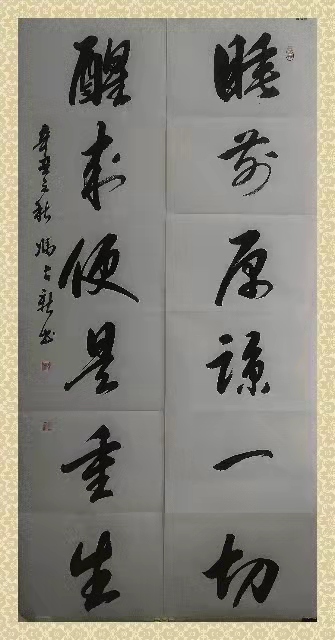 睡前原谅一切
醒来便是重生
辛丑之秋 占新书